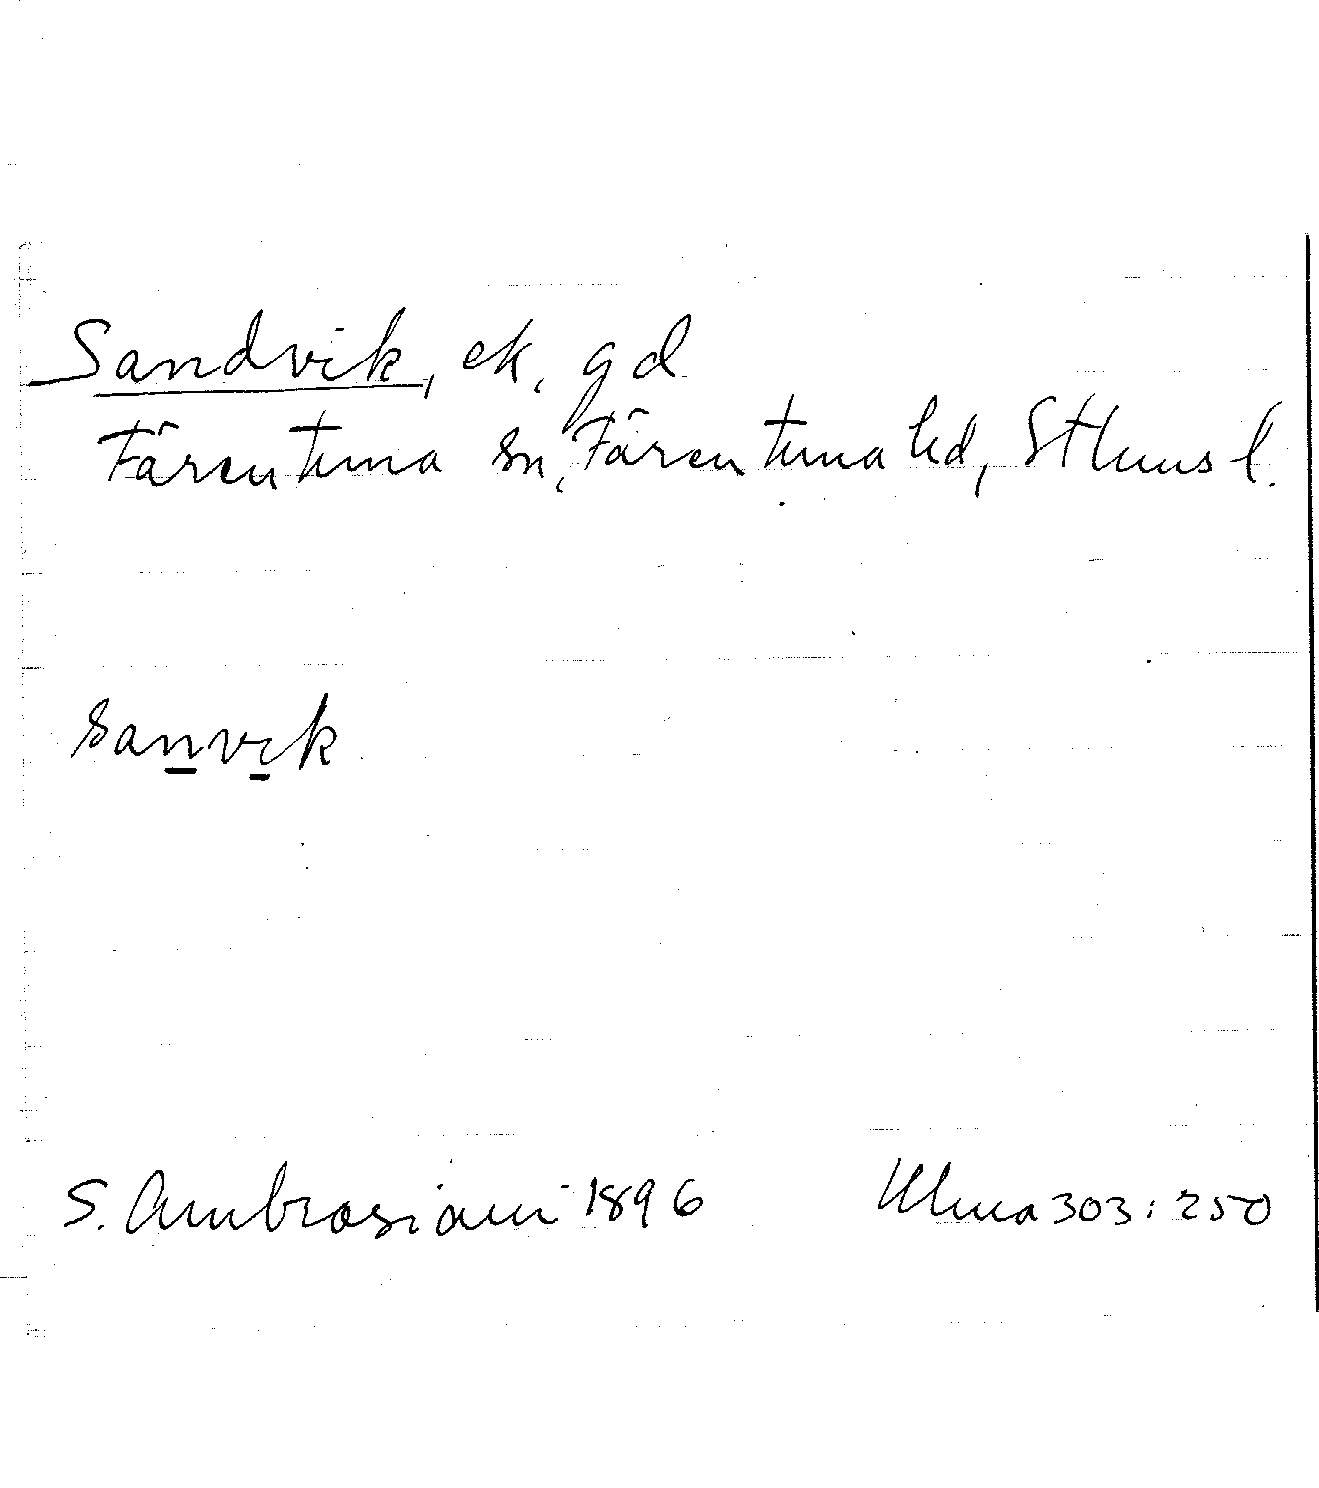 Sandvik, ek. gd
Färentuna sn, Färentuna hd, Sthms l.
sanvik
S. Ambrosiani 1896 Ulma 303:250